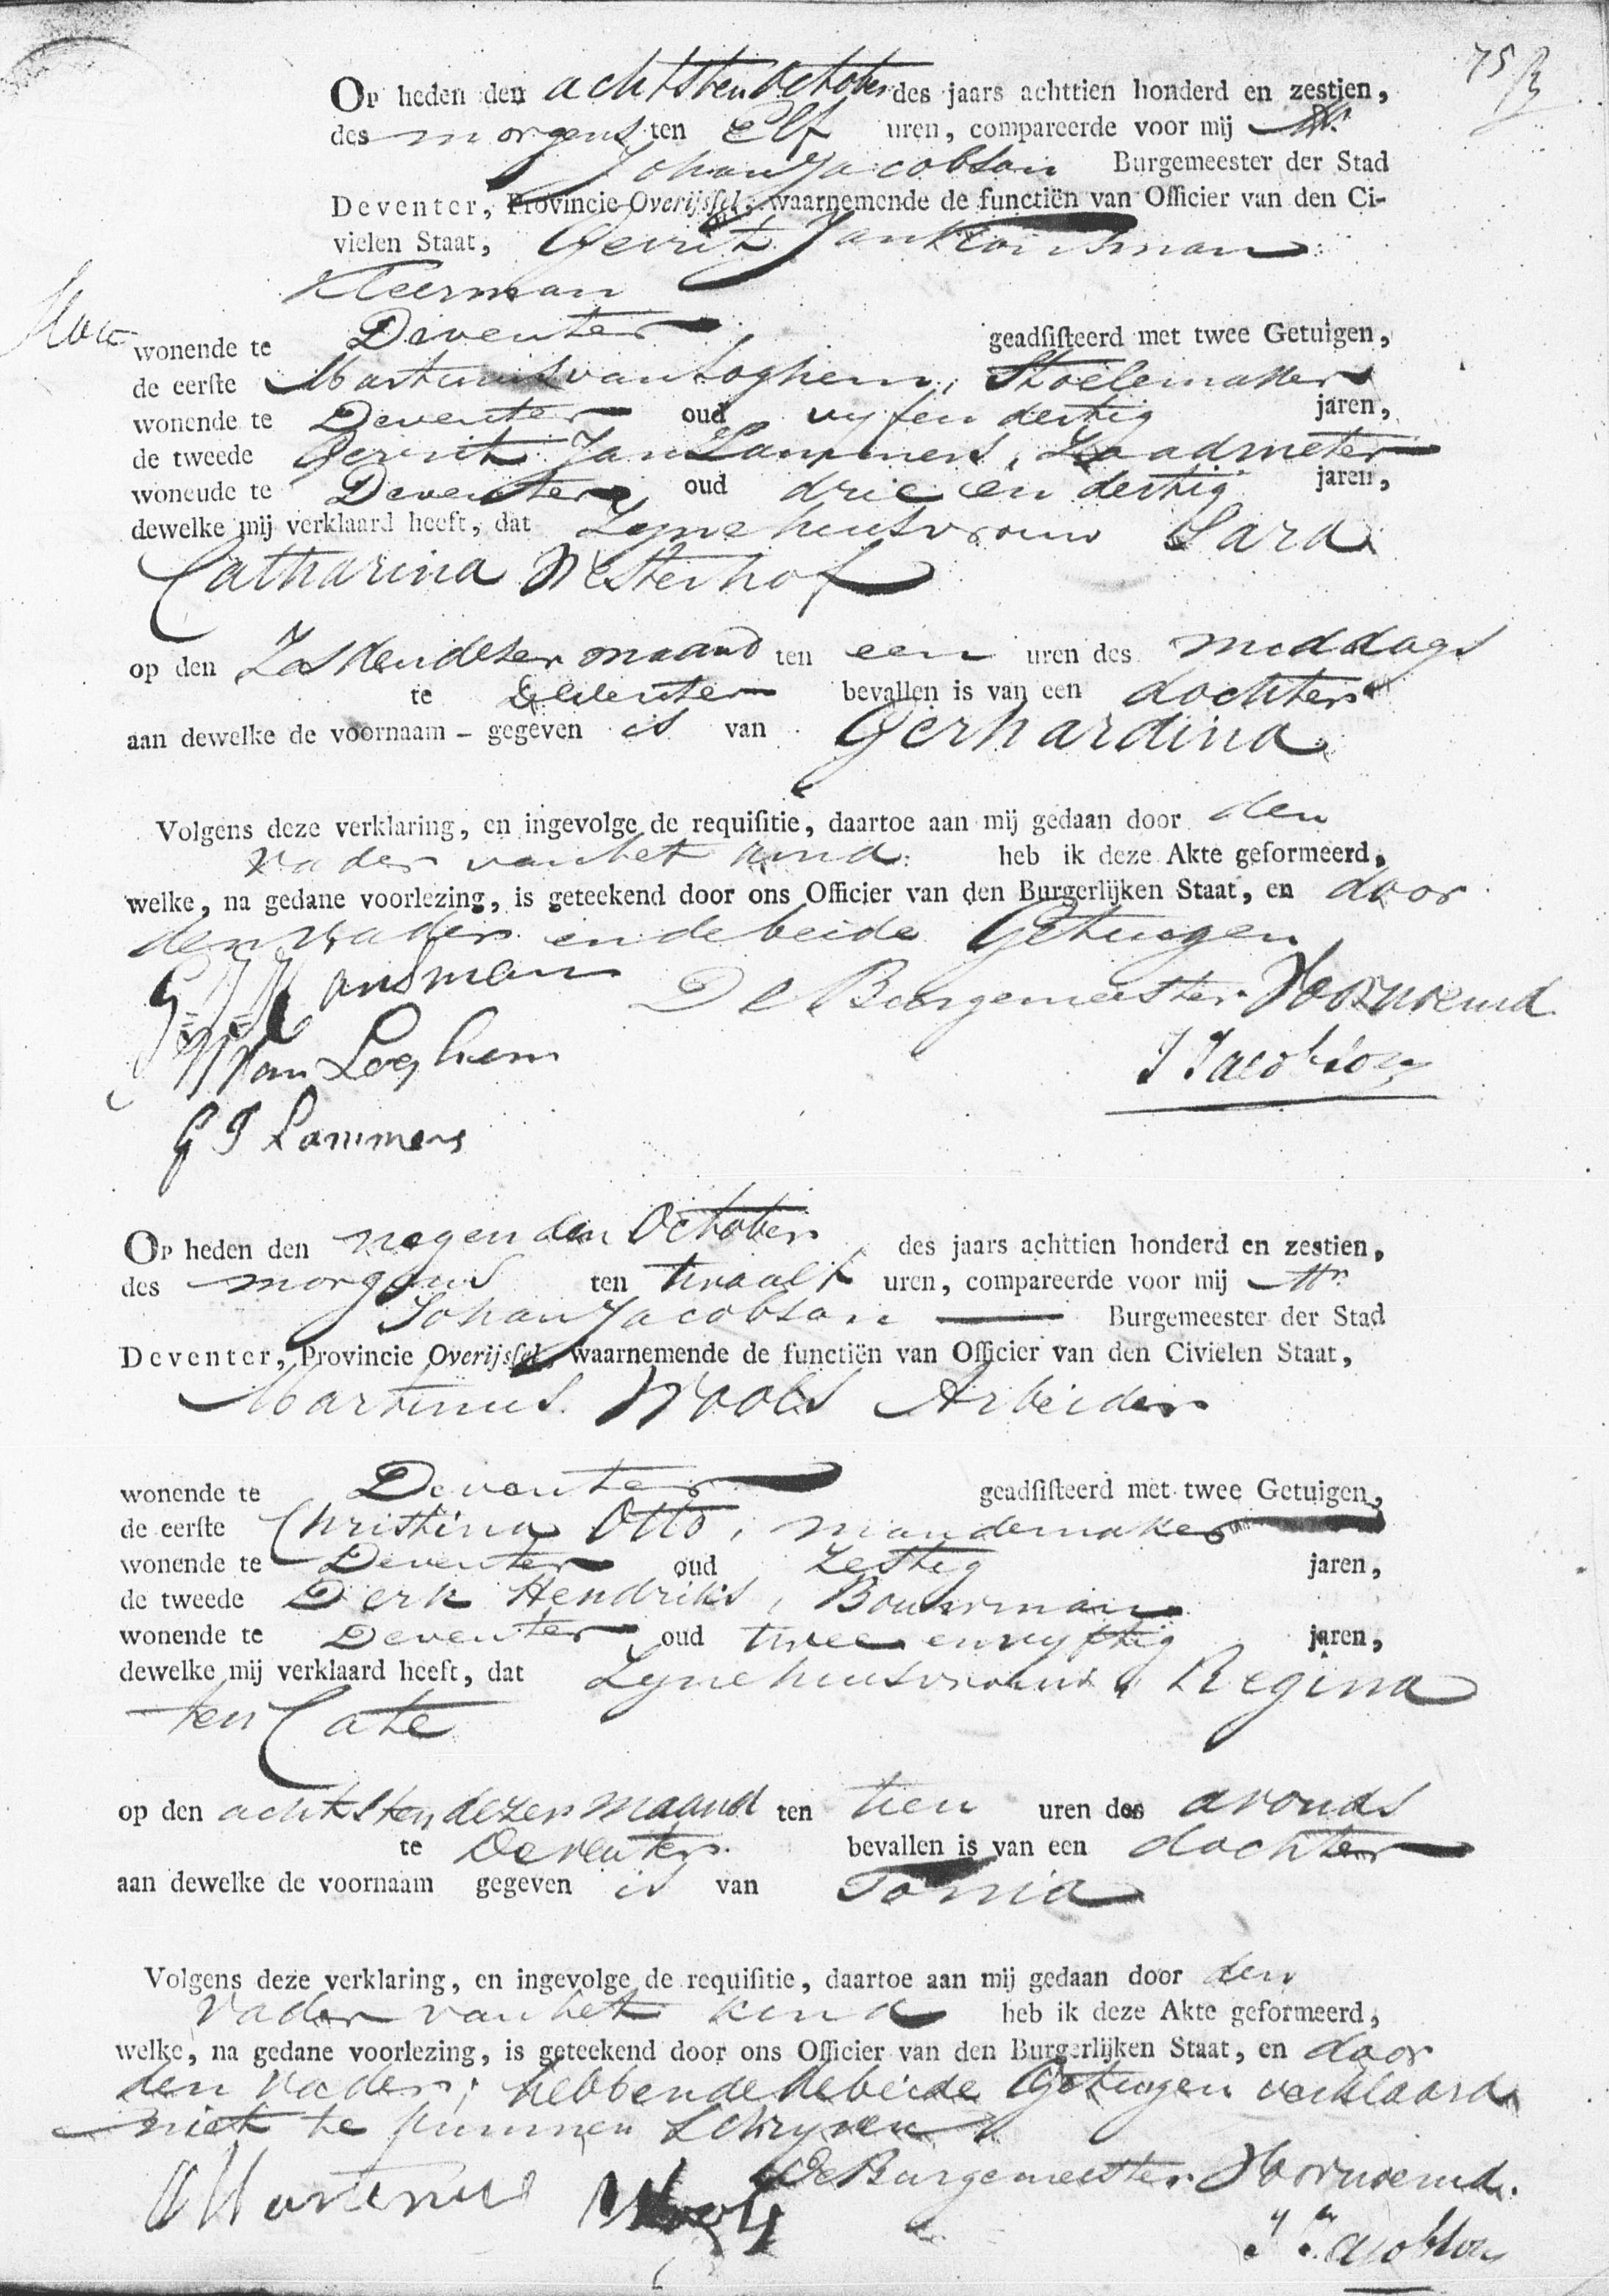 75
Op heden den achtsten October des jaars achttien honderd en zestien,
des morgens ten Elf uren, compareerde voor mij Mr.
Johan Jacobson Burgemeester der Stad
Deventer, Provincie Overijssel, waarnemende de functiën van Officier van den Ci-
vielen Staat, Gerrit Jan
Kleerman
wonende te Deventer geadsisteerd met twee Getuigen,
de eerste Martinus van Loghem, Stoelemaker
wonende te Deventer oud vyf en dertig jaren,
de tweede Gerrit Jan Lammers, Zaadmeter
wonende te Deventer, oud drie en dertig jaren,
dewelke mij verklaard heeft, dat Zyne huisvrouw Sara
Catharina Westerhof
op den Zesden dezer maand ten een uren des middags
te Deventer bevallen is van een dochter
aan dewelke de voornaam – gegeven is van Gerhardina
Volgens deze verklaring, en ingevolge de requisitie, daartoe aan mij gedaan door den
vader van het kind heb ik deze Akte geformeerd,
welke, na gedane voorlezing, is geteekend door ons Officier van den Burgerlijken Staat, en door
den vader en de beide Getuigen
De Burgemeester Voornoemd
G J Konsman
J Jacobson
M Van Loghem
G J Lammers
Op heden den negenden October des jaars achttien honderd en zestien,
des morgens ten twaalf uren, compareerde voor mij Mr.
Johan Jacobson Burgemeester der Stad
Deventer, Provincie Overijssel, waarnemende de functiën van Officier van den Civielen Staat,
Martinus Wools Arbeider
wonende te Deventer geadsisteerd met twee Getuigen,
de eerste Christina Otto, mandemaker
wonende te Deventer oud zestig jaren,
de tweede Derk Hendriks, Bouwman
wonende te Deventer oud twee en vyftig jaren,
dewelke mij verklaard heeft, dat Zyne huisvrouw Regina
ten Cate
op den achtsten dezer maand ten tien uren des avonds
te Deventer bevallen is van een dochter
aan dewelke de voornaam gegeven is van Tonia
Volgens deze verklaring, en ingevolge de requisitie, daartoe aan mij gedaan door den
Vader van het kind heb ik deze Akte geformeerd,
welke, na gedane voorlezing, is geteekend door ons Officier van den Burgerlijken Staat, en door
den Vader; hebbende de beide Getuigen verklaard
niet te kunnen Schryven
De Burgemeester Voornoemd.
Martinus
J Jacobson